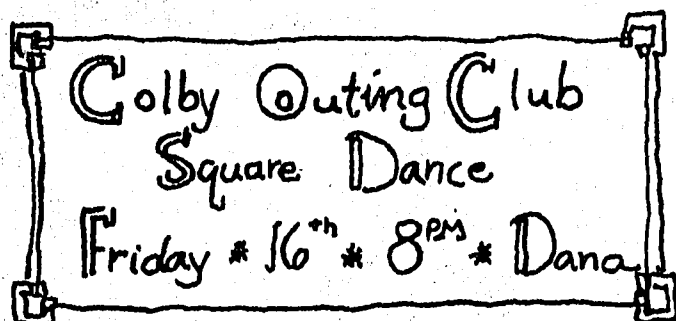 Colby Outing Club
Square Dance
Friday * 16th * 8PM * Dana